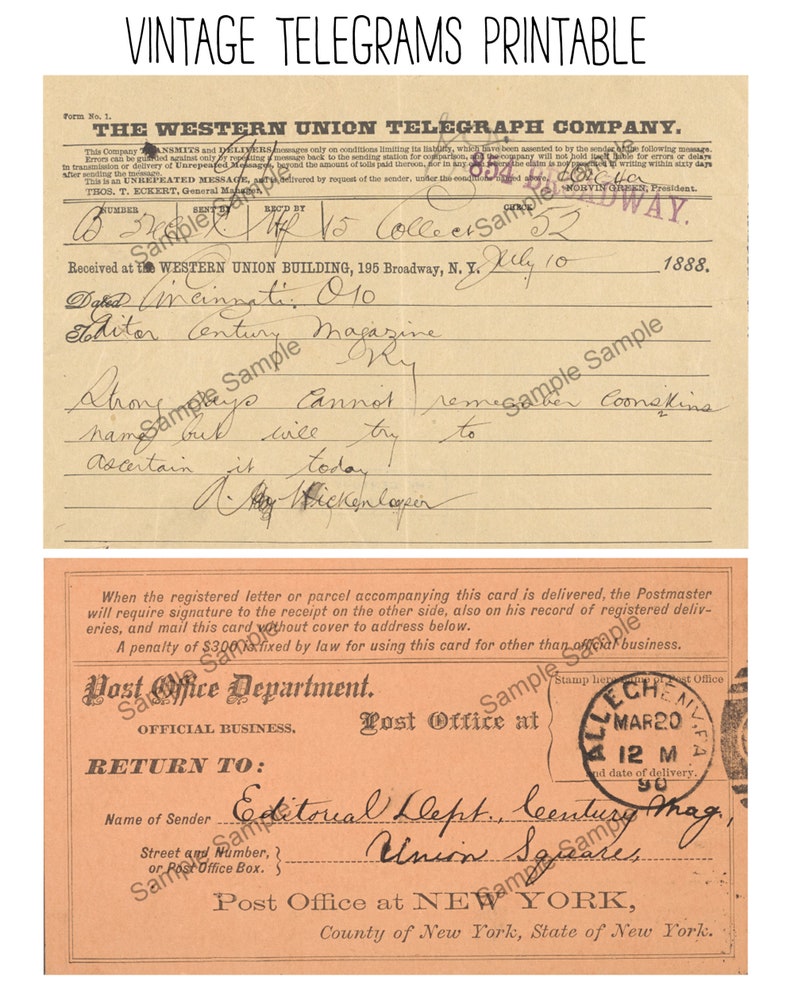 VINTAGE TELEGRAMS PRINTABLE
Form No. 1.
THE WESTERN UNION TELEGRAPH COMPANY.
This Company TRANSMITS and DELIVERS messages only on conditions limiting its liability, which have been assented to by the sender of the following message.
Errors can be guarded against only by repeating a message back to the sending station for comparison, and the company will not hold itself liable for errors or delays
in transmission or delivery of Unrepeated Messages, beyond the amount of tolls paid thereon, nor in any case where the claim is not presented in writing within sixty days
after sending the message.
This is an UNREPEATED MESSAGE, and is delivered by request of the sender, under the conditions named above.
THOS. T. ECKERT, General Manager. NORVIN GREEN, President.
854 BROADWAY.
NUMBER SENT BY REC'D BY CHECK
B 15 Collect 52
Received at the WESTERN UNION BUILDING, 195 Broadway, N. Y. July 10 1888.
Dated Cincinnati. O 10
To Editor Century Magazine
Strong says cannot remember Coonskins
name but will try to
ascertain it today
A. Hickenlooper
Sample Sample
Sample Sample
Sample Sample
Sample Sample
When the registered letter or parcel accompanying this card is delivered, the Postmaster
will require signature to the receipt on the other side, also on his record of registered deliv-
eries, and mail this card without cover to address below.
A penalty of $300 is fixed by law for using this card for other than official business.
Post Office Department.
OFFICIAL BUSINESS.
Post Office at
Stamp here name of Post Office
and date of delivery.
ALLEGHENY, PA.
MAR 20
12 M
90
RETURN TO:
Name of Sender Editorial Dept., Century Mag.,
Street and Number, or Post Office Box. Union Square,
Post Office at NEW YORK,
County of New York, State of New York.
Sample Sample
Sample Sample
Sample Sample
Sample Sample